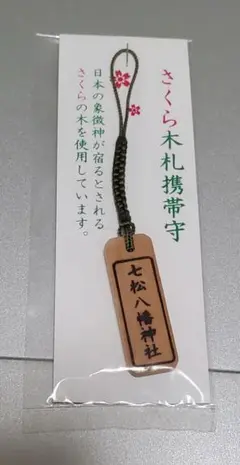 さくら木札携帯守
日本の象徴神が宿るとされる
さくらの木を使用しています。
七松八幡神社